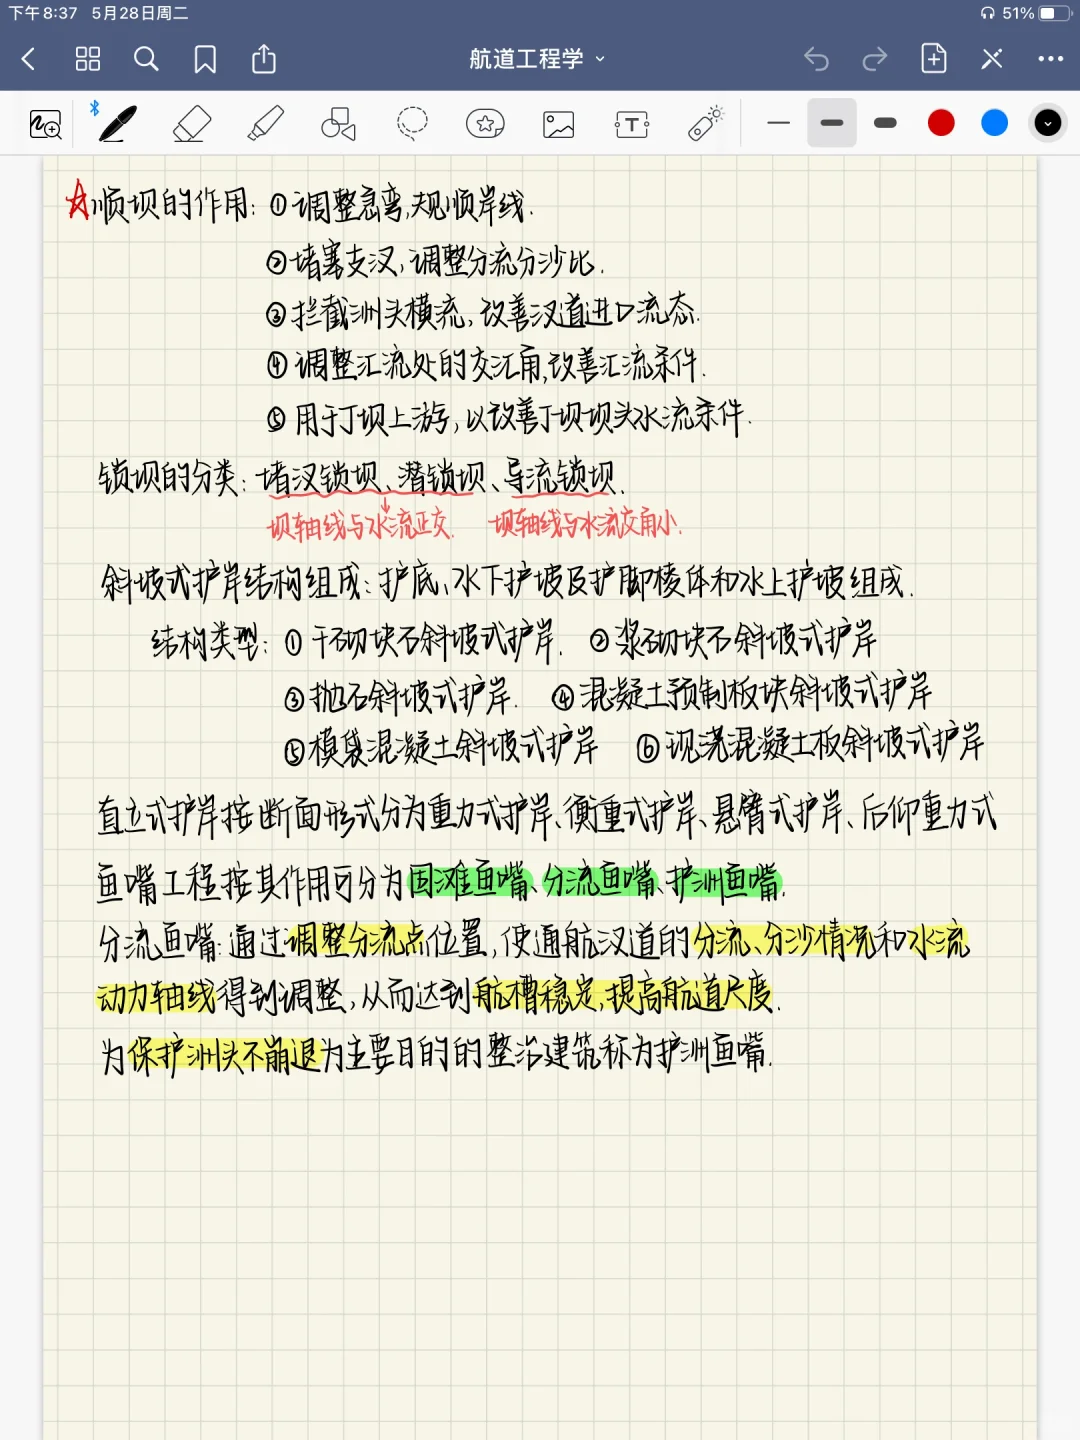 下午8:37 5月28日周二 51%
航道工程学
☆顺坝的作用: ①调整急弯,规顺岸线.
②堵塞支汊,调整分流分沙比.
③拦截洲头横流,改善汊道进口流态.
④调整汇流处的交汇角,改善汇流条件.
⑤用于丁坝上游,以改善丁坝坝头水流条件.
锁坝的分类:堵汊锁坝、潜锁坝、导流锁坝.
坝轴线与水流正交. 坝轴线与水流交角小.
斜坡式护岸结构组成:护底、水下护坡及护脚棱体和水上护坡组成.
结构类型: ①干砌块石斜坡式护岸. ②浆砌块石斜坡式护岸
③抛石斜坡式护岸. ④混凝土预制板块斜坡式护岸
⑤模袋混凝土斜坡式护岸 ⑥现浇混凝土板斜坡式护岸
直立式护岸按断面形式分为重力式护岸、衡重式护岸、悬臂式护岸、后仰重力式
鱼嘴工程按其作用可分为固滩鱼嘴、分流鱼嘴、护洲鱼嘴.
分流鱼嘴:通过调整分流点位置,使通航汊道的分流、分沙情况和水流
动力轴线得到调整,从而达到航槽稳定,提高航道尺度.
为保护洲头不崩退为主要目的的整治建筑称为护洲鱼嘴.